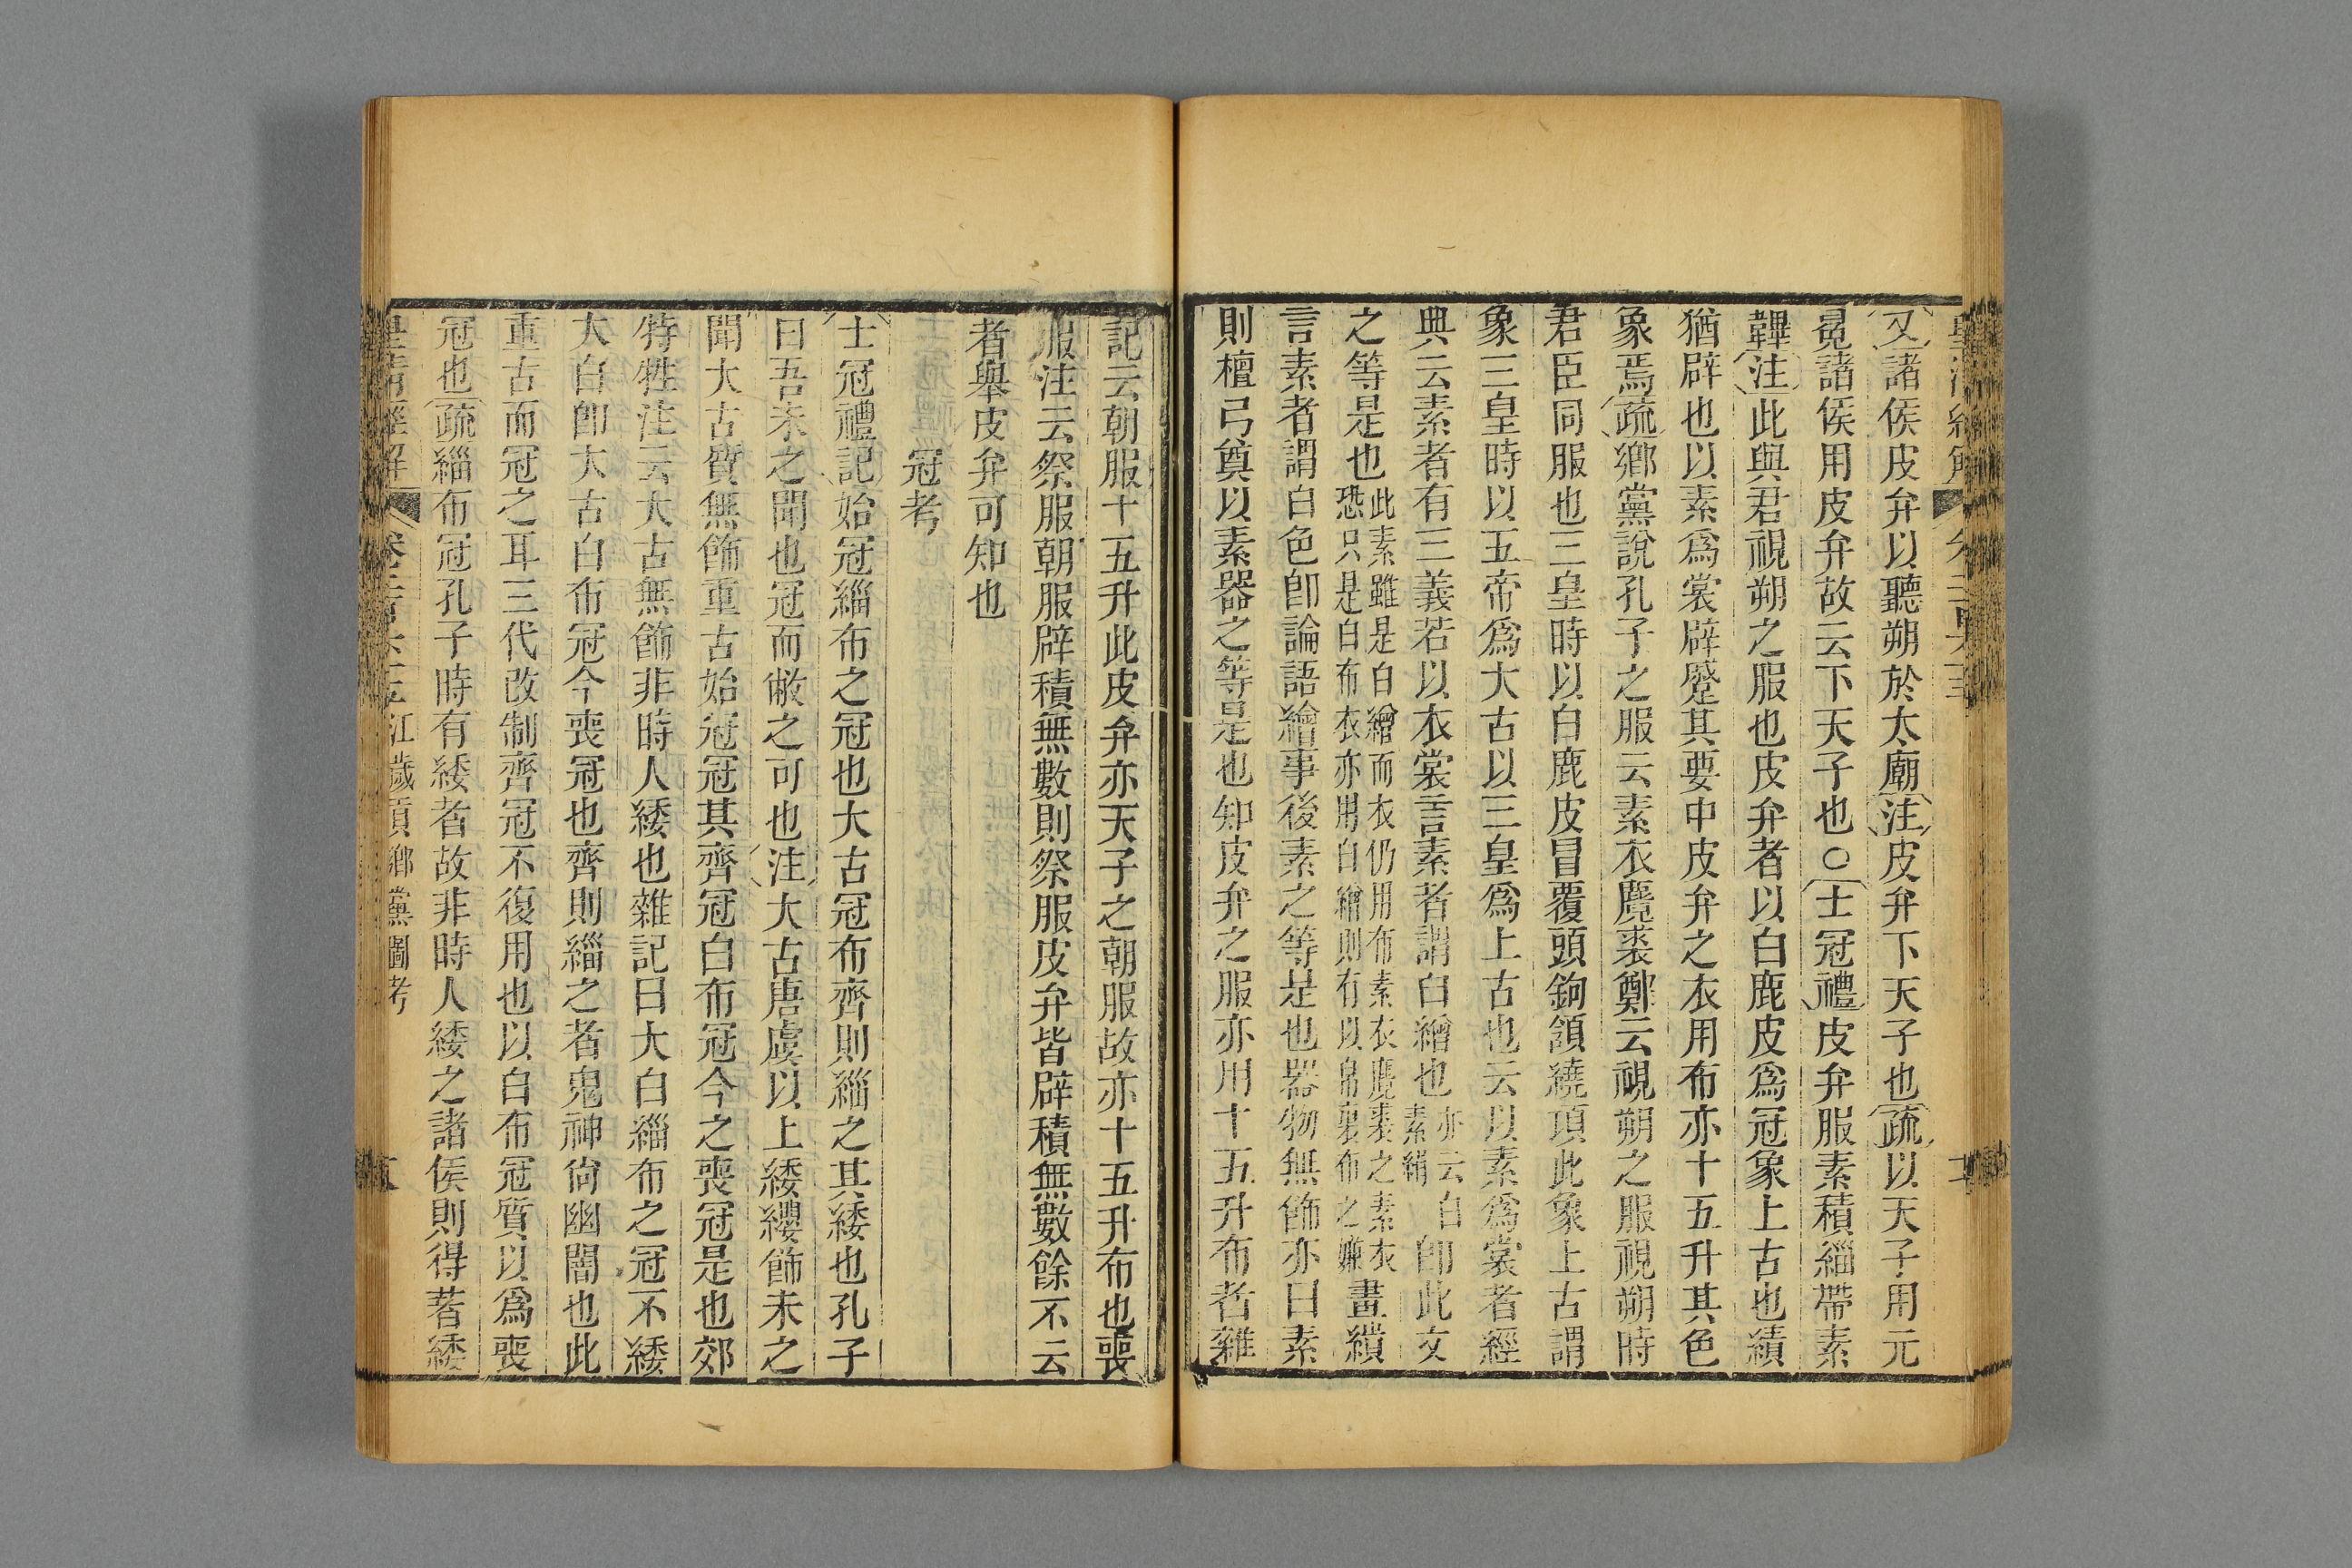 又諸侯皮弁以聽朔於太廟注皮弁下天子也疏以天子用元
冕諸侯用皮弁故云下天子也○士冠禮皮弁服素積緇帶素
韠注此與君視朔之服也皮弁者以白鹿皮爲冠象上古也績
猶辟也以素爲裳辟蹙其要中皮弁之衣用布亦十五升其色
象焉疏鄉黨說孔子之服云素衣麑裘鄭云視朔之服視朔時
君臣同服也三皇時以白鹿皮冒覆頭鉤頷繞項此象上古謂
象三皇時以五帝爲大古以三皇爲上古也云以素爲裳者經
典云素者有三義若以衣裳言素者謂白繒也亦云白素絹卽此文
之等是也此素雖是白繒而衣仍用布素衣麑裘之素衣恐只是白布衣亦用白繒則有以帛裏布之嫌畫繢
言素者謂白色卽論語繪事後素之等是也器物無飾亦曰素
則檀弓奠以素器之等是也知皮弁之服亦用十五升布者雜
記云朝服十五升此皮弁亦天子之朝服故亦十五升布也喪
服注云祭服朝服辟積無數則祭服皮弁皆辟積無數餘不云
者舉皮弁可知也
冠考
士冠禮記始冠緇布之冠也大古冠布齊則緇之其緌也孔子
曰吾未之聞也冠而敝之可也注大古唐虞以上緌纓飾未之
聞大古質無飾重古始冠冠其齊冠白布冠今之喪冠是也郊
特牲注云大古無飾非時人緌也雜記曰大白緇布之冠不緌
大白卽大古白布冠今喪冠也齊則緇之者鬼神尙幽闇也此
重古而冠之耳三代改制齊冠不復用也以白布冠質以爲喪
冠也疏緇布冠孔子時有緌者故非時人緌之諸侯則得著緌
皇清經解 江歲貢鄉黨圖考